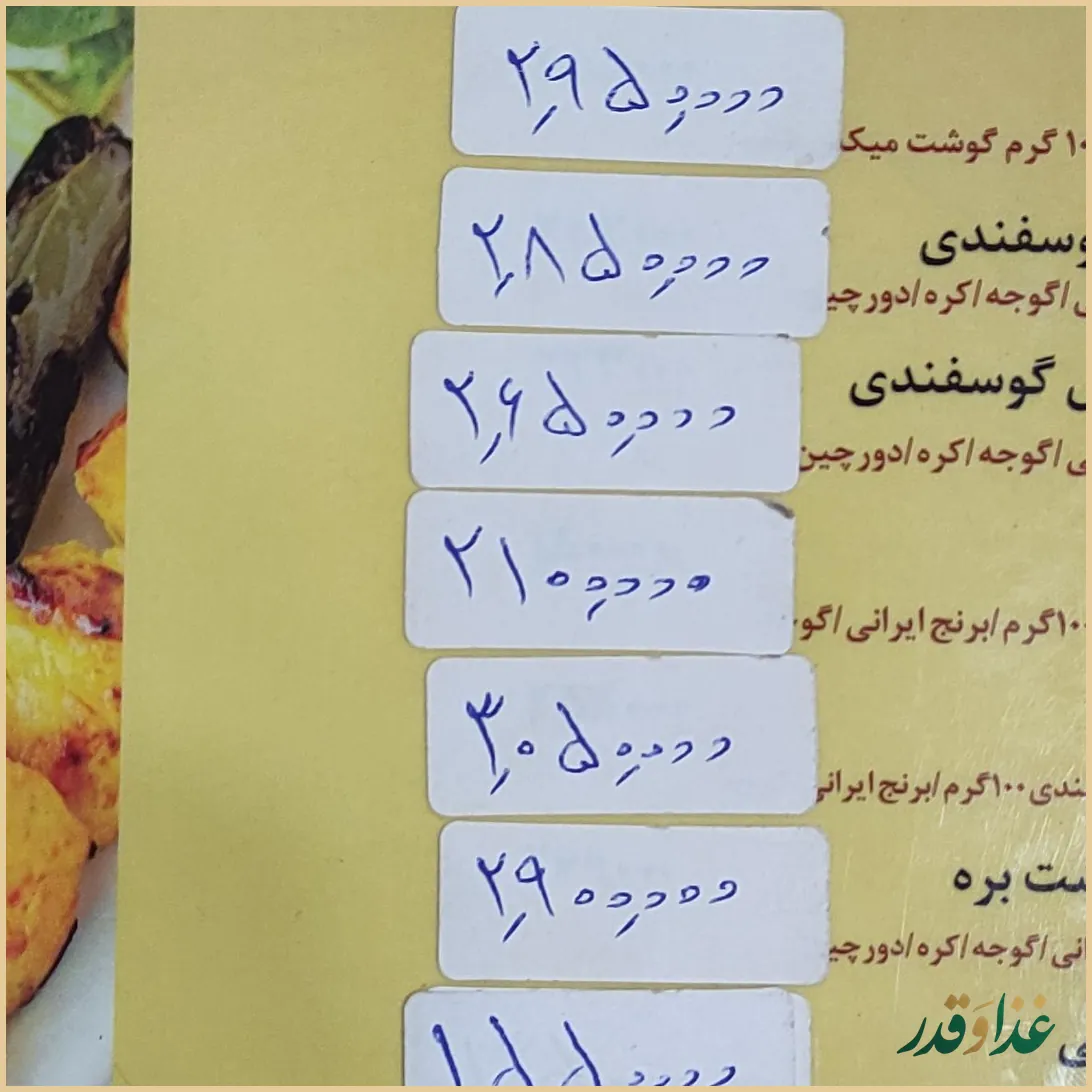 ۲,۹۵۰,۰۰۰
۱۰ گرم گوشت
۲,۸۵۰,۰۰۰
وسفندی
/گوجه/کره/دورچی
۲,۶۵۰,۰۰۰
گوسفندی
/گوجه/کره/دورچین
۲۱۰۰,۰۰۰
۱۰۰گرم/برنج ایرانی/گو
۳,۰۵۰,۰۰۰
ندی ۱۰۰گرم/برنج ایرانی
۲,۹۰۰,۰۰۰
ست بره
انی/گوجه/کره/دورچی
غذا و قدر